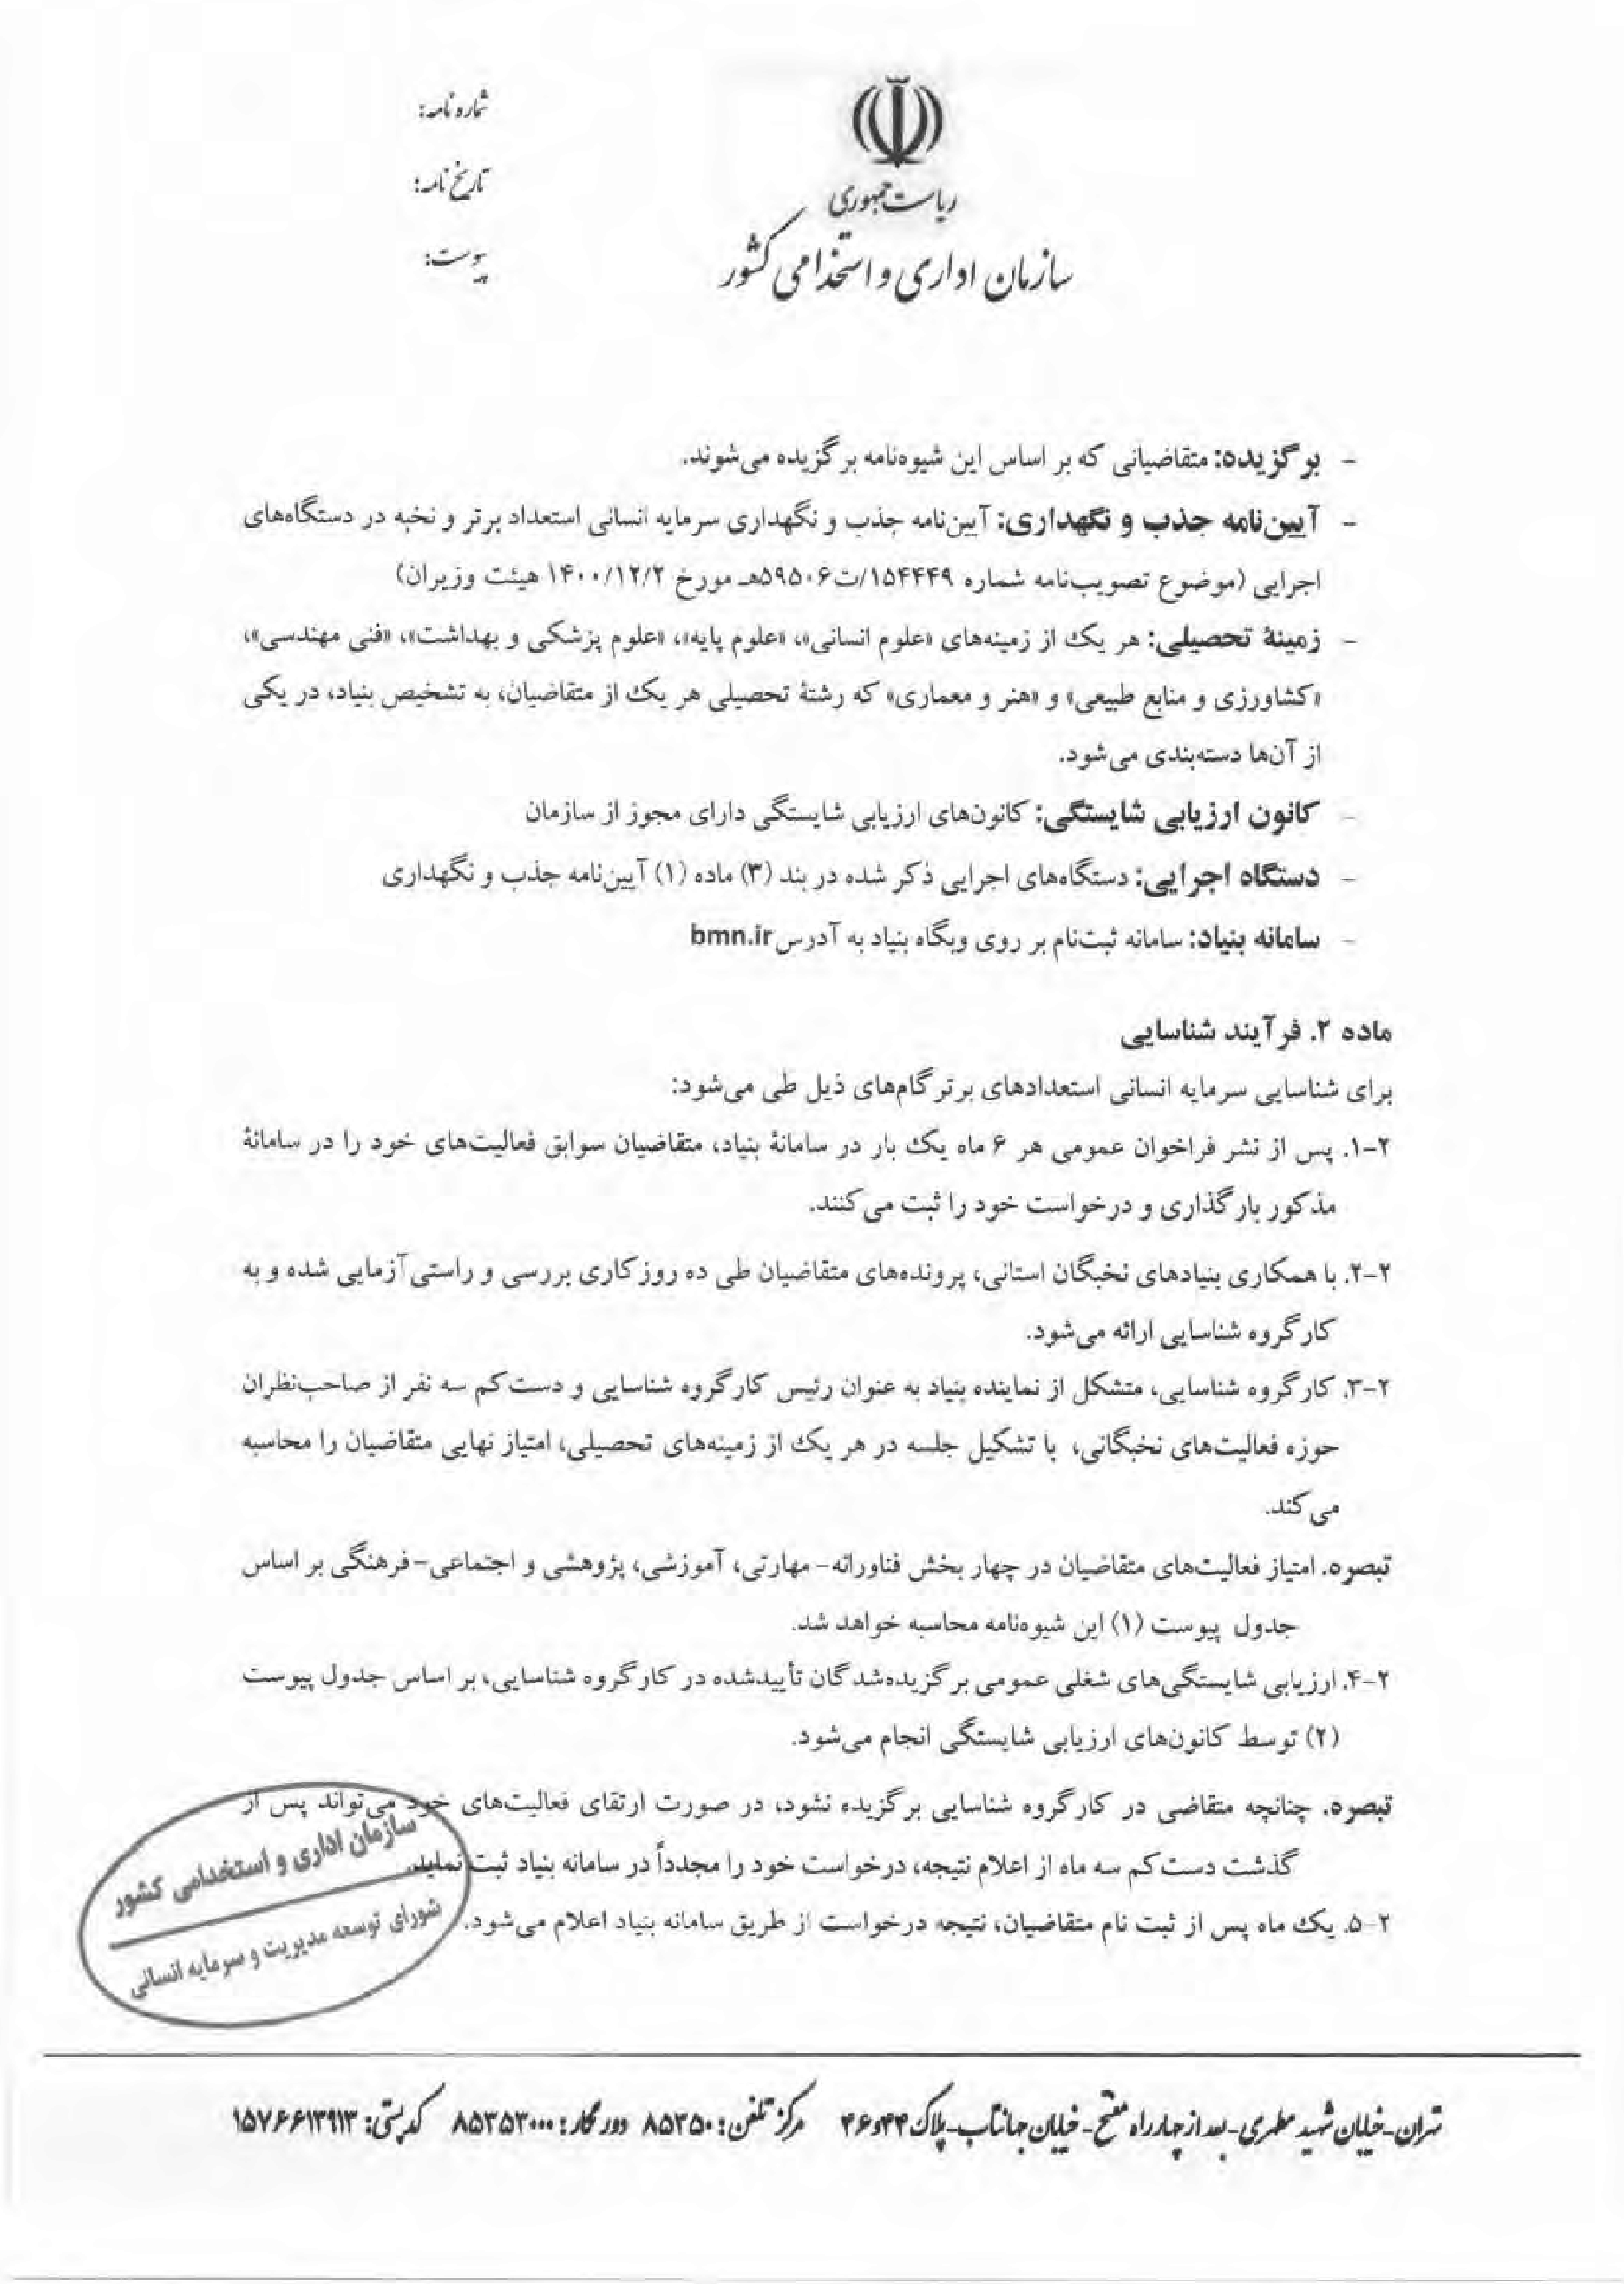 ریاست جمهوری
سازمان اداری و استخدامی کشور
شماره نامه:
تاریخ نامه:
پیوست:
- برگزیده: متقاضیانی که بر اساس این شیوه‌نامه برگزیده می‌شوند.
- آیین‌نامه جذب و نگهداری: آیین‌نامه جذب و نگهداری سرمایه انسانی استعداد برتر و نخبه در دستگاه‌های
اجرایی (موضوع تصویب‌نامه شماره ۱۵۴۴۴۹/ت۵۹۵۰۶هـ مورخ ۱۴۰۰/۱۲/۲ هیئت وزیران)
- زمینهٔ تحصیلی: هر یک از زمینه‌های «علوم انسانی»، «علوم پایه»، «علوم پزشکی و بهداشت»، «فنی مهندسی»،
«کشاورزی و منابع طبیعی» و «هنر و معماری» که رشتهٔ تحصیلی هر یک از متقاضیان، به تشخیص بنیاد، در یکی
از آن‌ها دسته‌بندی می‌شود.
- کانون ارزیابی شایستگی: کانون‌های ارزیابی شایستگی دارای مجوز از سازمان
- دستگاه اجرایی: دستگاه‌های اجرایی ذکر شده در بند (۳) ماده (۱) آیین‌نامه جذب و نگهداری
- سامانه بنیاد: سامانه ثبت‌نام بر روی وبگاه بنیاد به آدرس bmn.ir
ماده ۲. فرآیند شناسایی
برای شناسایی سرمایه انسانی استعدادهای برتر گام‌های ذیل طی می‌شود:
۲-۱. پس از نشر فراخوان عمومی هر ۶ ماه یک بار در سامانهٔ بنیاد، متقاضیان سوابق فعالیت‌های خود را در سامانهٔ
مذکور بارگذاری و درخواست خود را ثبت می‌کنند.
۲-۲. با همکاری بنیادهای نخبگان استانی، پرونده‌های متقاضیان طی ده روز کاری بررسی و راستی‌آزمایی شده و به
کارگروه شناسایی ارائه می‌شود.
۲-۳. کارگروه شناسایی، متشکل از نماینده بنیاد به عنوان رئیس کارگروه شناسایی و دست‌کم سه نفر از صاحب‌نظران
حوزه فعالیت‌های نخبگانی، با تشکیل جلسه در هر یک از زمینه‌های تحصیلی، امتیاز نهایی متقاضیان را محاسبه
می‌کند.
تبصره. امتیاز فعالیت‌های متقاضیان در چهار بخش فناورانه- مهارتی، آموزشی، پژوهشی و اجتماعی-فرهنگی بر اساس
جدول پیوست (۱) این شیوه‌نامه محاسبه خواهد شد.
۲-۴. ارزیابی شایستگی‌های شغلی عمومی برگزیده‌شدگان تأییدشده در کارگروه شناسایی، بر اساس جدول پیوست
(۲) توسط کانون‌های ارزیابی شایستگی انجام می‌شود.
تبصره. چنانچه متقاضی در کارگروه شناسایی برگزیده نشود، در صورت ارتقای فعالیت‌های خود می‌تواند پس از
گذشت دست‌کم سه ماه از اعلام نتیجه، درخواست خود را مجدداً در سامانه بنیاد ثبت نماید.
۲-۵. یک ماه پس از ثبت نام متقاضیان، نتیجه درخواست از طریق سامانه بنیاد اعلام می‌شود.
سازمان اداری و استخدامی کشور
شورای توسعه مدیریت و سرمایه انسانی
تهران-خیابان شهید مطهری-بعد از چهارراه مفتح-خیابان جهانتاب-پلاک ۴۴و۴۶ مرکز تلفن: ۸۵۳۵۰ دورنگار: ۸۵۳۵۳۰۰۰ کد پستی: ۱۵۷۶۶۱۳۹۱۳